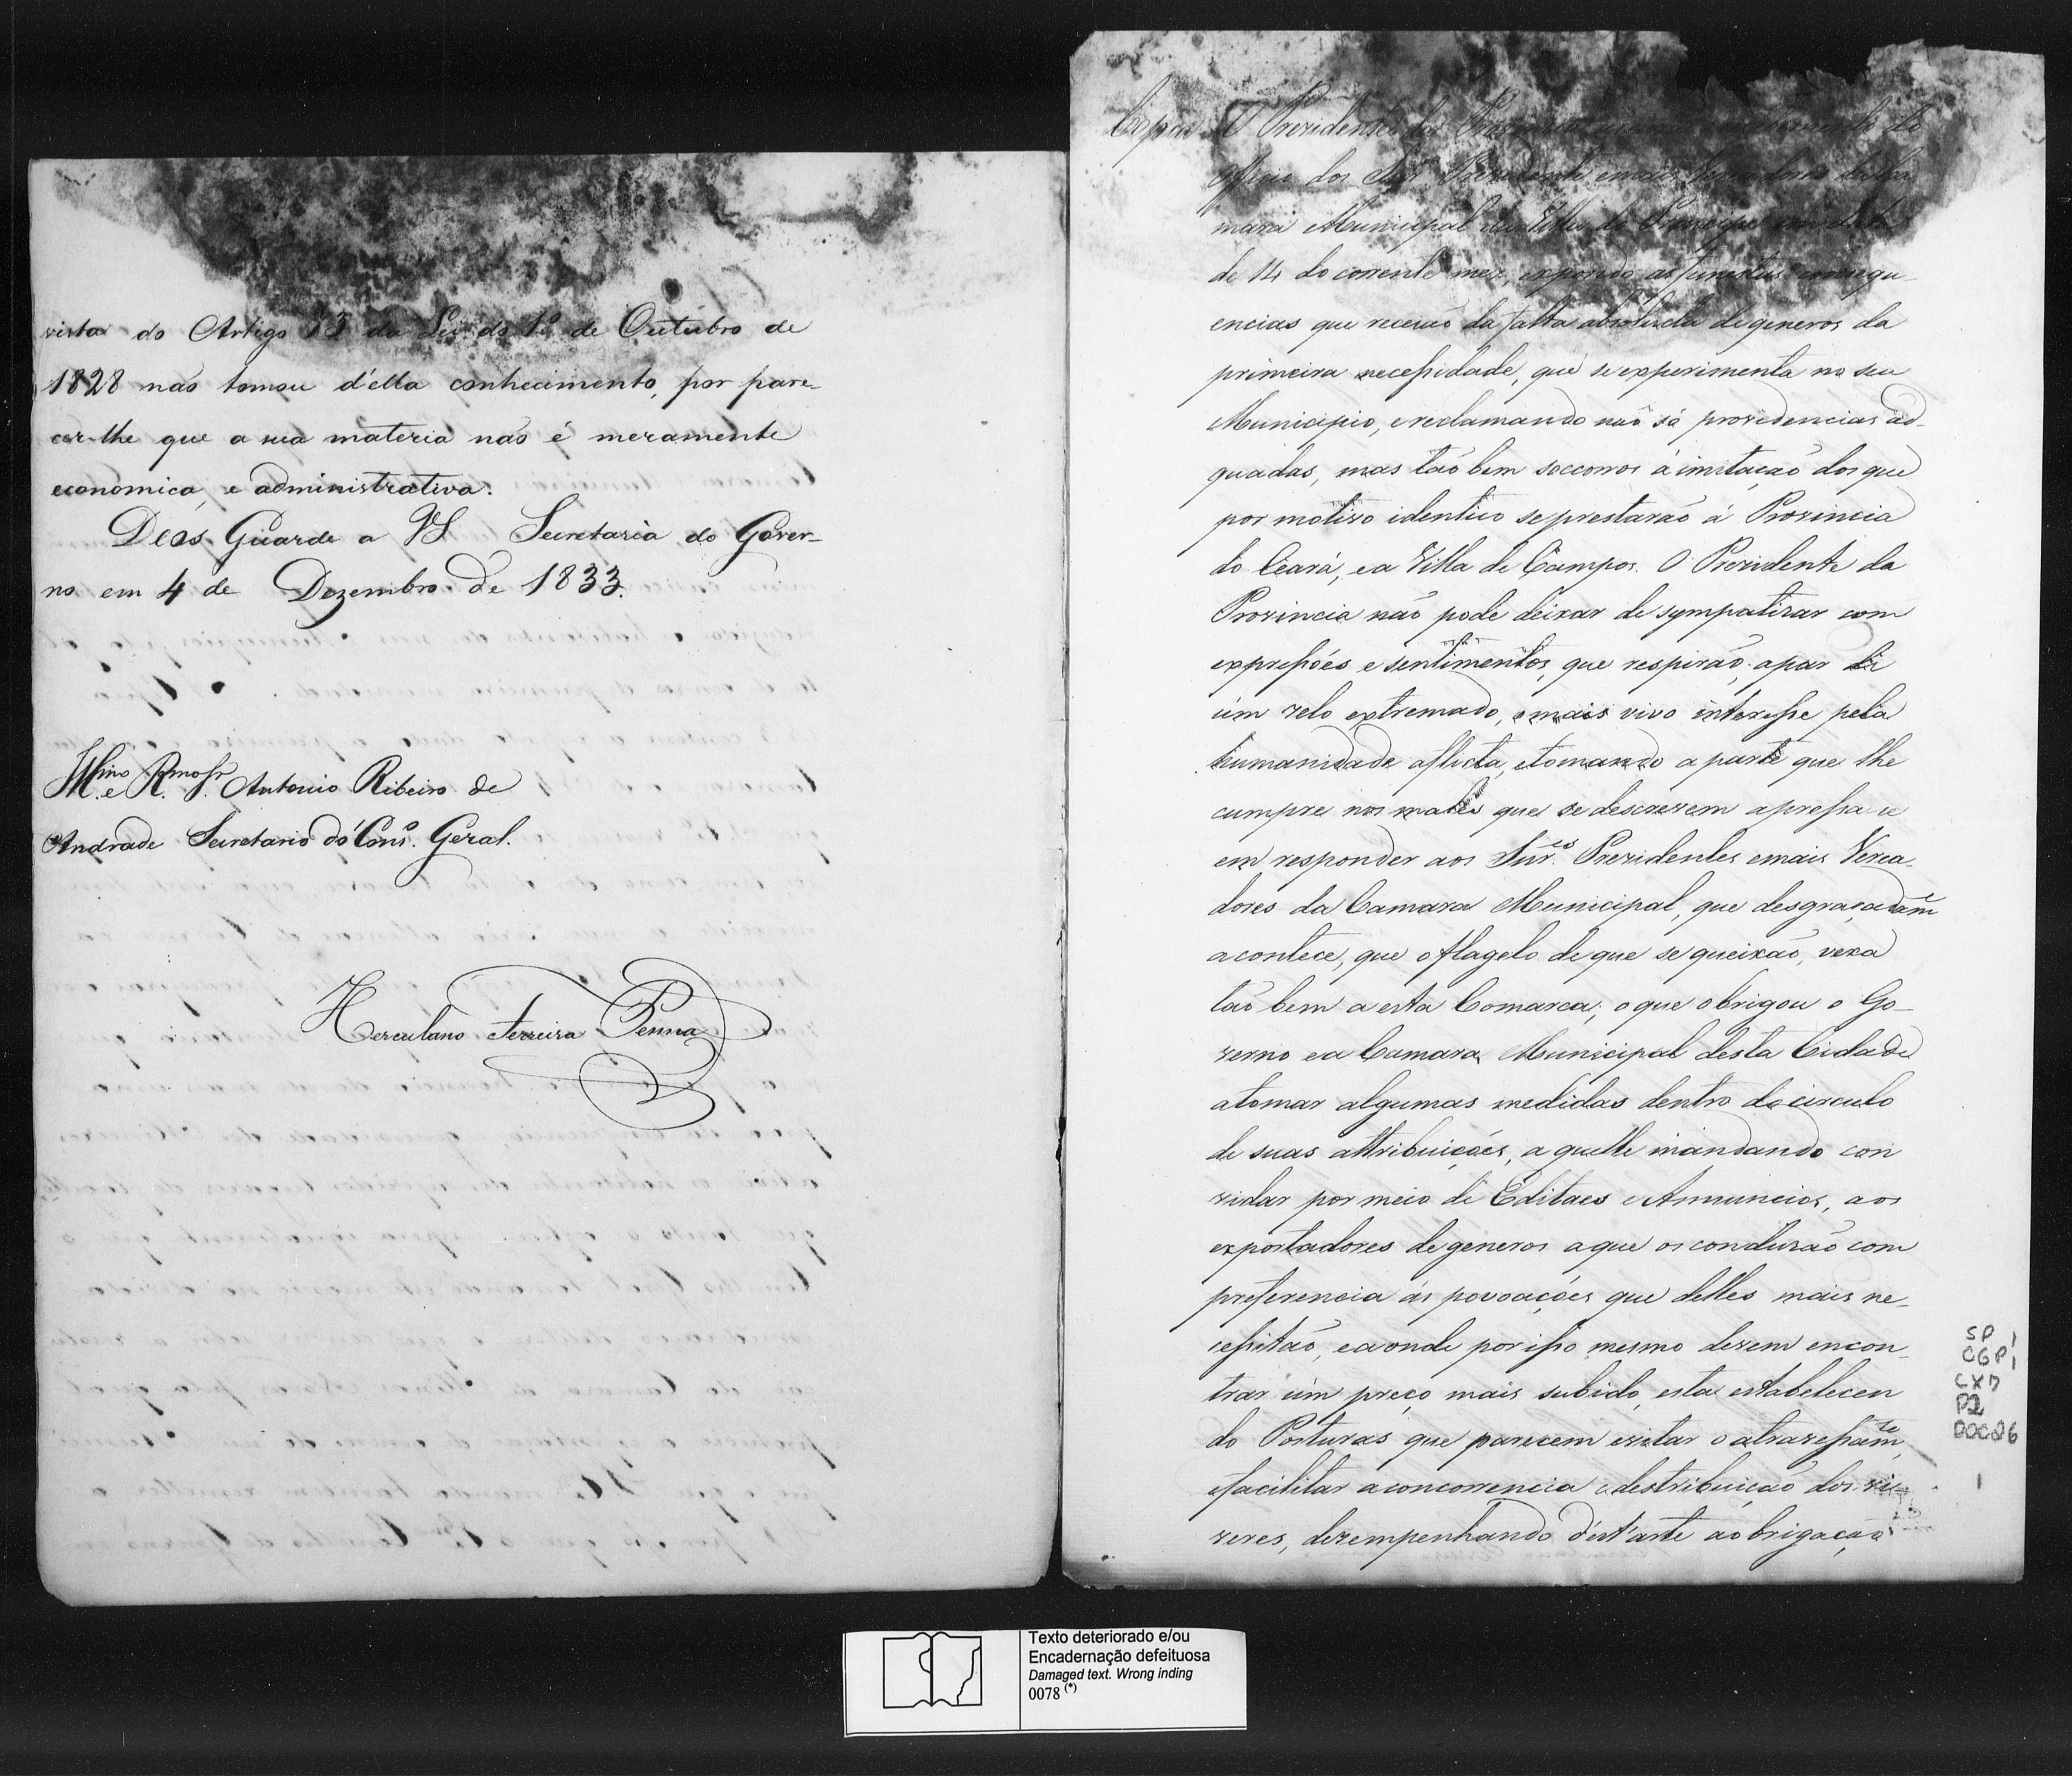 vista do Artigo 73 da Lei do 1º de Outubro de
1828 não tomou d'ella conhecimento, por pare-
cer-lhe que a sua materia não é meramente
economica, e administrativa.
Deos Guarde a VS Secretaria do Gover-
no em 4 de Dezembro de 1833.
Illmo e Rmo Sr. Antonio Ribeiro de
Andrade Secretario do Conso. Geral.
Herculano Ferreira Penna
Copia O Prezidente da
officio dos Snrs Prezidente e mais
mara Municipal da Villa do Principe
de 14 do corrente mez, expondo as funestas consequ-
encias que receião da falta absoluta de generos da
primeira necessidade, que se experimenta no seu
Municipio, e reclamando não só providencias ad-
quadas, mas tão bem soccorros á imitação dos que
por motivo identico se prestarão á Provincia
do Ceará, e a Villa de Campos. O Prezidente da
Provincia não pode deixar de sympatisar com
expressões e sentimentos, que respirão, apar de
úm zelo extremado, o mais vivo interesse pela
humanidade aflicta, e tomando a parte que lhe
cumpre nos males que se descrevem apressa-se
em responder aos Snr.es Prezidentes e mais Verea-
dores da Camara Municipal, que desgraçadam
acontece, que o flagelo de que se queixão, vexa
tão bem a esta Comarca; o que obrigou o Go-
verno e a Camara Municipal desta Cidade
atomar algumas medidas dentro do circulo
de suas attribuições, a quelle mandando con
vidar por meio de Editaes e Annuncios, aos
exportadores de generos a que os conduzão com
preferencia ás povoações que delles mais ne-
cessitão, e aonde por isso mesmo devem encon-
trar úm preço mais subido, esta estabelecen
do Posturas que parecem evitar o atravessamte,
e facilitar a concorrencia e destribuição dos vi-
veres, dezempenhando d'est'arte a obrigação
SP
CGP1
CX7
P2
DOC26
1
Texto deteriorado e/ou
Encadernação defeituosa
Damaged text. Wrong inding
0078 (*)